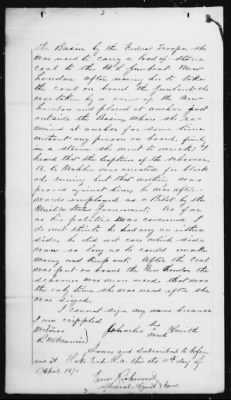 the Basin by the Federal Troops, she
was used to carry a load of stone
coal to the U.S. Gunboat New
London after using her to take
the coal on board the Gunboat she
was taken by a crew of the New
London and placed at anchor just
outside the Basin where she re-
mained at anchor for some time
without any person on board, finally
in a storm she went to wreck. I
heard that the Captain of the schooner,
was arrested for block
ade running but that nothing was
proved against him, he was after-
wards employed as a Pilot by the
United States Government. As far
as his politics was concerned I
do not think he had any on either
side, he did not care which side
won so long as he could make
money and keep out. After the coal
was put on board the New London the
schooner was never used that was
the only time she was used after she
was seized.
I cannot sign my name because
I am crippled
Witness his
mark Smith
Sworn and Subscribed to before
me at Lake End La. this the 10th day of
April 1875
Special Agent